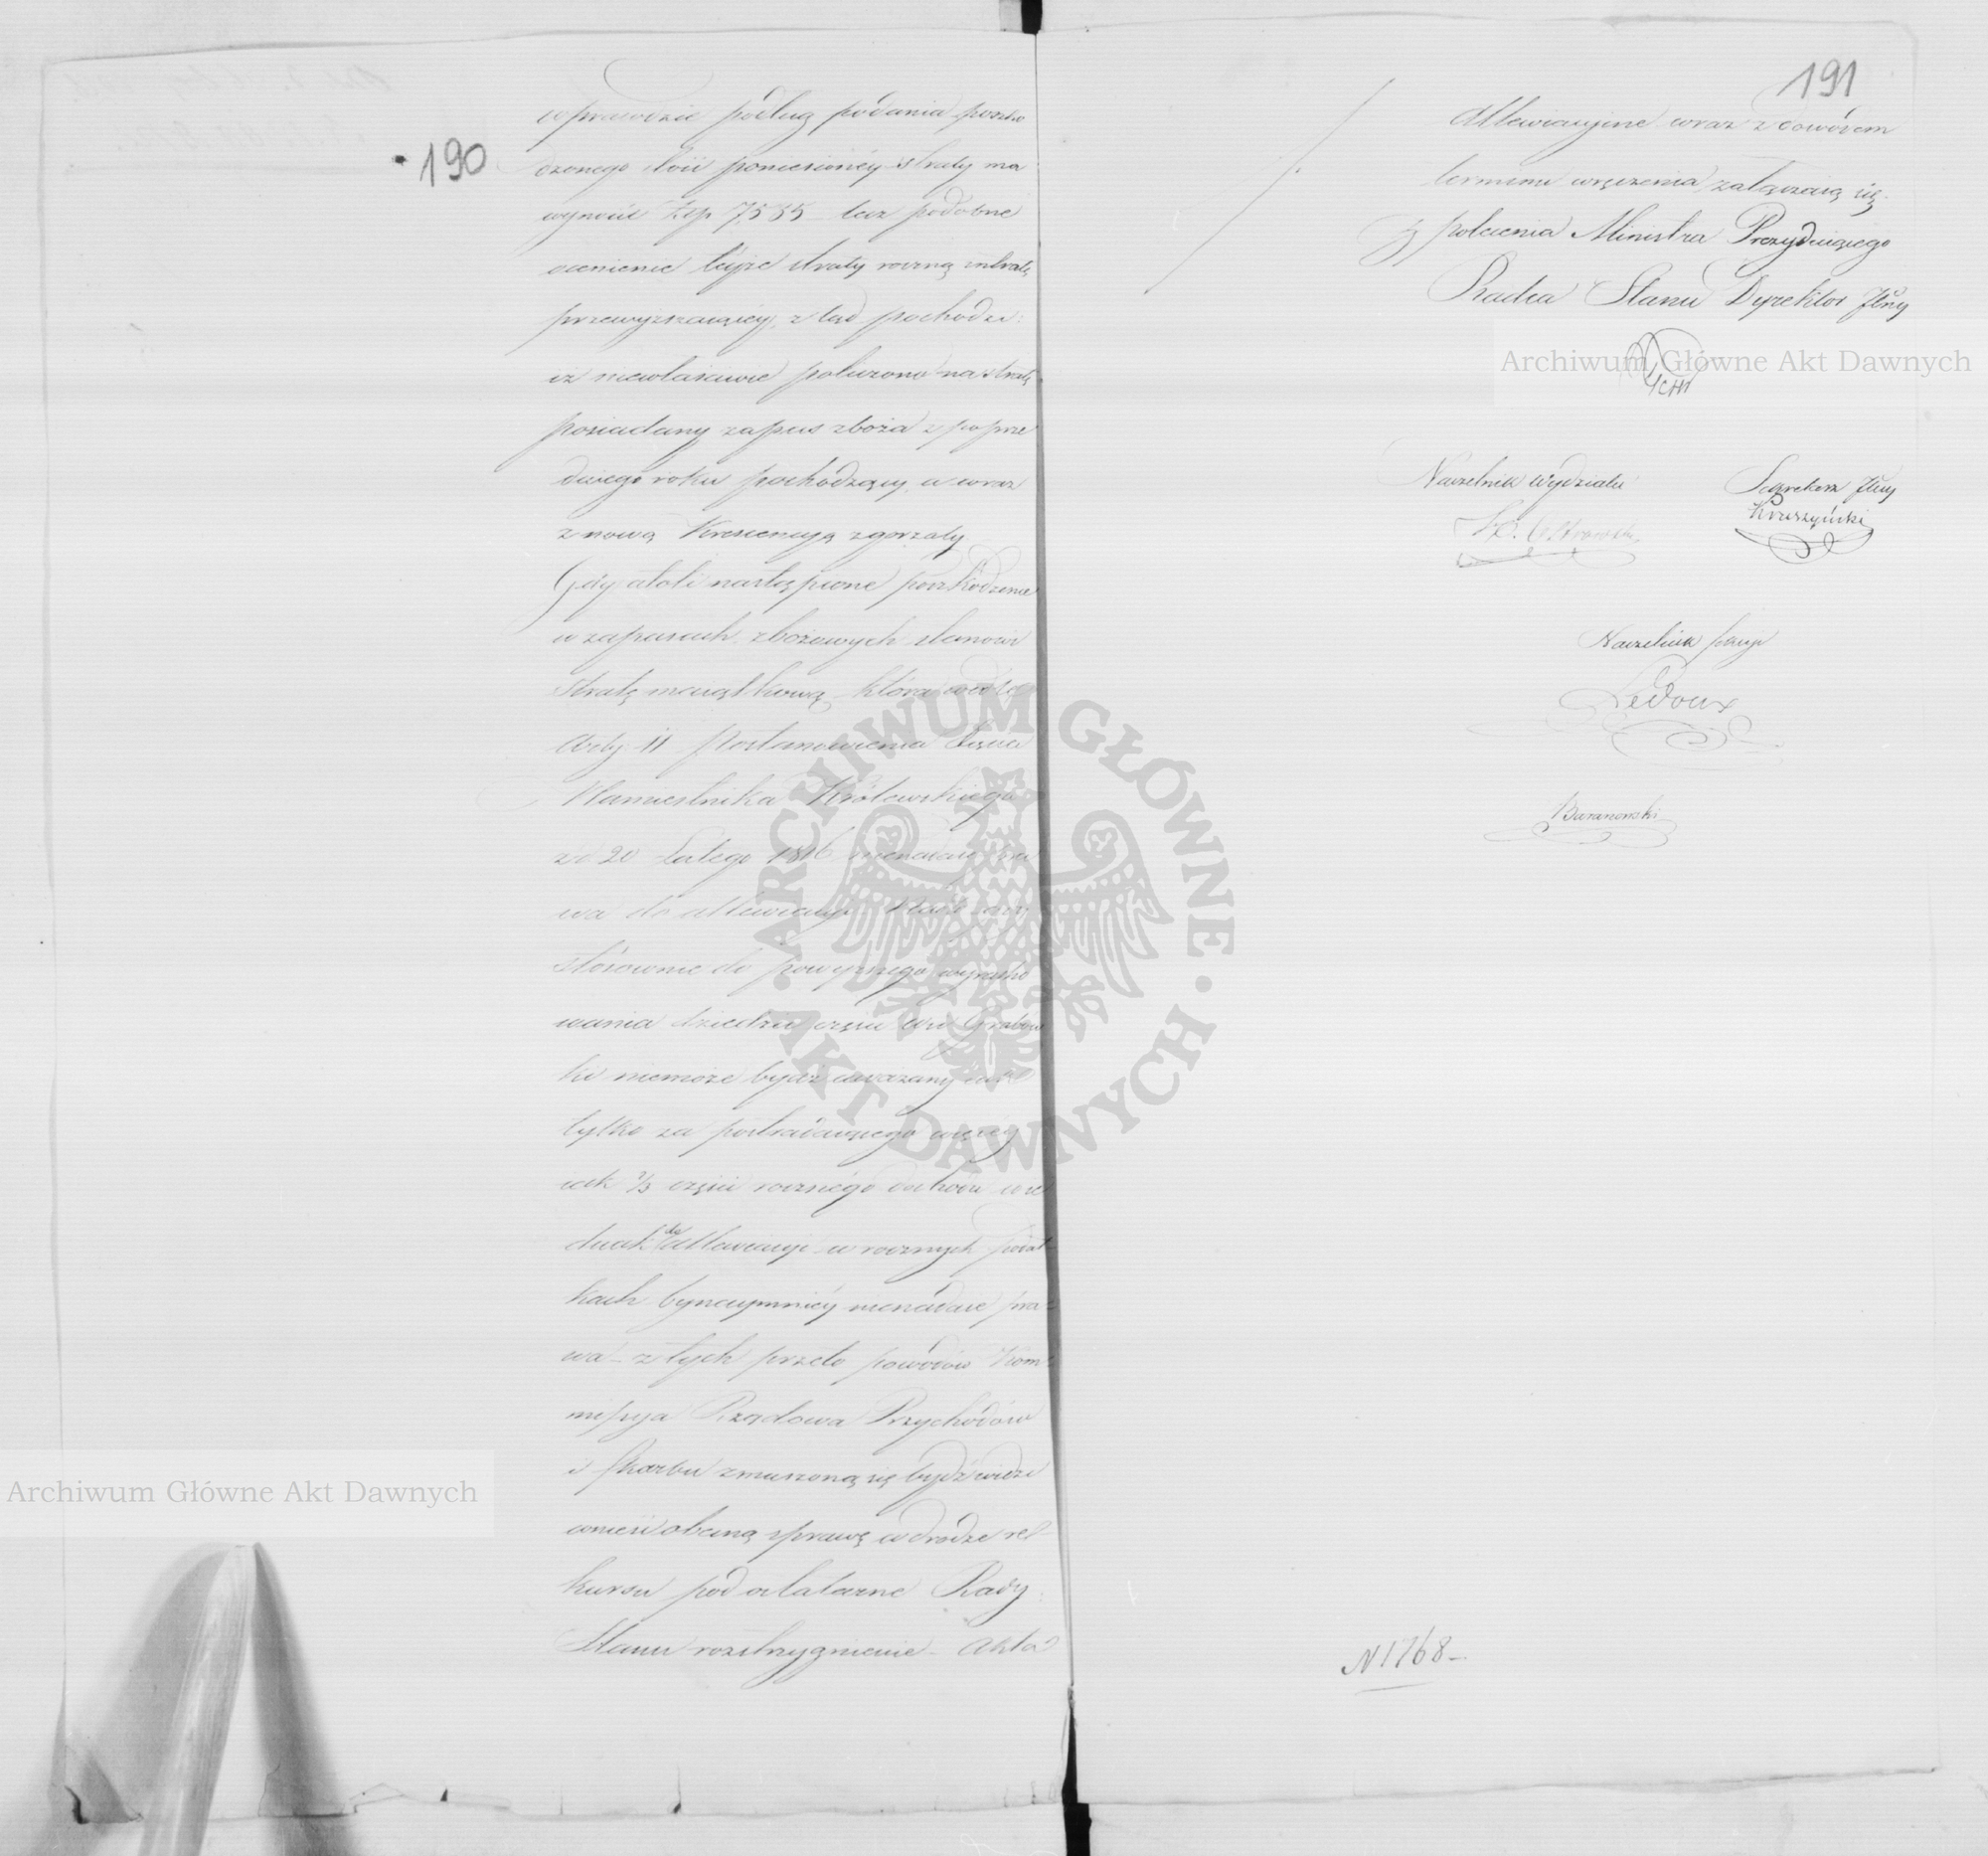 190
wprawdzie podług podania poszko
dzonego ilość poniesionéy straty ma
wynosić Złp 7,535 lecz podobne
ocenienie teyże straty roczną intratę
przewyższaiącey, ztąd pochodzi:
iż niewłaściwie policzono na stratę
posiadany zapas zboża z poprze
dniego roku pochodzący, a wraz
z nową Krescencyą zgorzały
Gdy atoli nastąpione poszkodzenie
w zapasach zbożowych stanowi
stratę maiątkową, która wedle
Arty. 11 Postanowienia Xięcia
Namiestnika Królewskiego
z d. 20 Lutego 1816 nienadaie pra
wa do allewiacyi
stósownie do powyższego wyracho
wania dziedzic części wsi Grabow
ki niemoże bydź uważany iak
tylko za postradaiącego więcéy
iak 2/3 części rocznégo dochodu co ie
dnak do allewiacyi w rocznych podat
kach bynaymniéy nienadaie pra
wa – z tych przeto powodów Kom
missya Rządowa Przychodów
i Skarbu zmuszoną się bydź widzi
wnieść obecną sprawę w drodze re
kursu pod ostateczne Rady
Stanu rozstrzygnienie – Akta
191
Allewiacyine wraz z dowodem
terminu wręczenia załączaią się.
z polecenia Ministra Prezyduiącego
Radca Stanu Dyrektor Jlny
Naczelnik Wydziału
Ostrowski
Sekretarz Jlny
Kruszyński
Naczelnik
Ledoux
Baranowski
N 1768–
Archiwum Główne Akt Dawnych
Archiwum Główne Akt Dawnych
ARCHIWUM GŁÓWNE AKT DAWNYCH